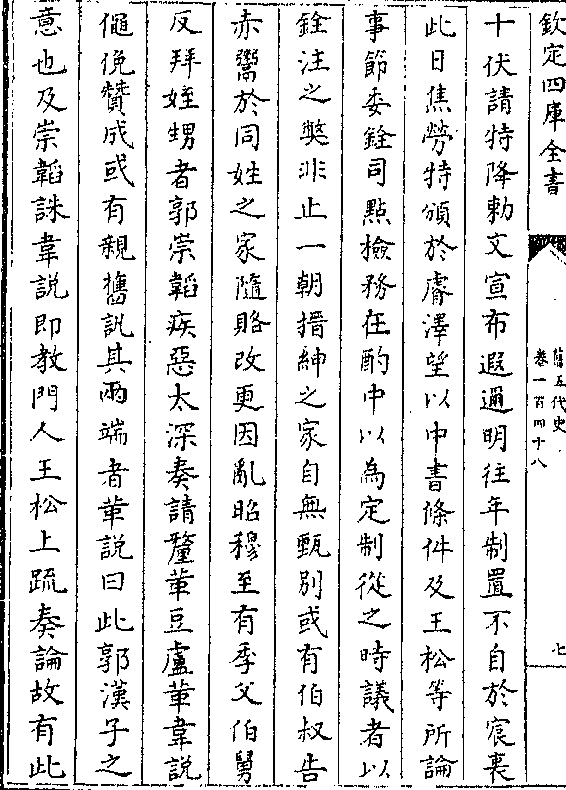 欽定四庫全書
舊五代史
卷一百四十八
七
十伏請特降勅文宣布遐邇明往年制置不自於宸衷
此日焦勞特頒於睿澤望以中書條件及王松等所論
事節委銓司點檢務在酌中以為定制從之時議者以
銓注之獘非止一朝搢紳之家自無甄別或有伯叔告
赤鬻於同姓之家隨賂改更因亂昭穆至有季父伯舅
反拜姪甥者郭崇韜疾惡太深奏請釐革豆盧革韋說
僶俛贊成或有親舊訊其兩端者革說曰此郭漢子之
意也及崇韜誅韋說即教門人王松上疏奏論故有此